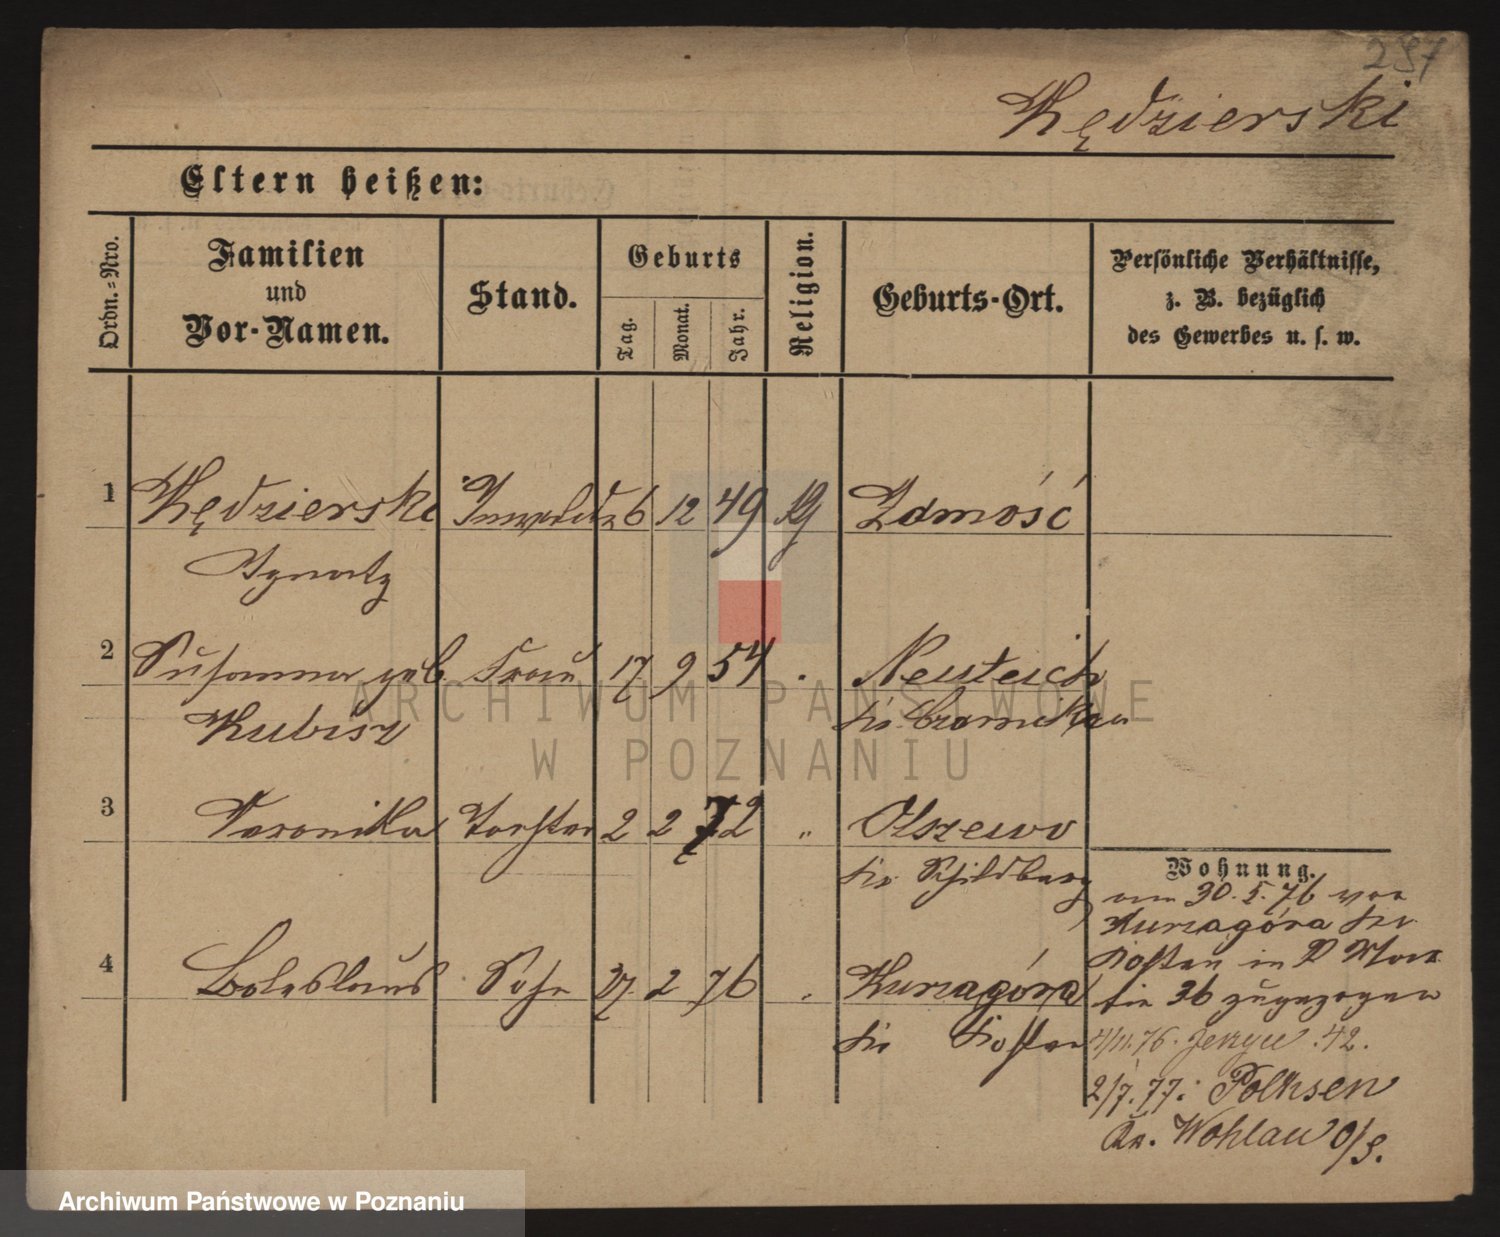 297
Kędzierski
Eltern heißen:
Ordn.-Nro.
Familien
und
Vor-Namen.
Stand.
Geburts
Tag.
Monat.
Jahr.
Religion.
Geburts-Ort.
Persönliche Verhältnisse,
z. B. bezüglich
des Gewerbes u. s. w.
1 Kędzierski 26 12 49 Zdmość
Ignatz
2 Susanna geb. Frau 17 9 54 Neuteich
Kubisz Kr. Czarnikau
3 Veronika Tochter 2 2 72 " Olszewo
Kr. Schildberg
Wohnung.
am 30.5.76 von
Kurzagóra Kr.
4 Boleslaus Sohn 27. 2 76 Kurzagóra
Kosten in
36 zugezogen
Kr. Kosten
4/11.76. Jerzyce .42.
2/7.77. Polksen
Kr. Wohlau O/S.
ARCHIWUM PAŃSTWOWE
W POZNANIU
Archiwum Państwowe w Poznaniu